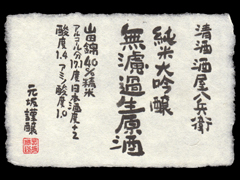 清酒 酒屋八兵衛
純米大吟醸
無濾過生原酒
山田錦40%精米
アルコール分17.1度 日本酒度+2
酸度1.4 アミノ酸度1.0
元坂謹醸